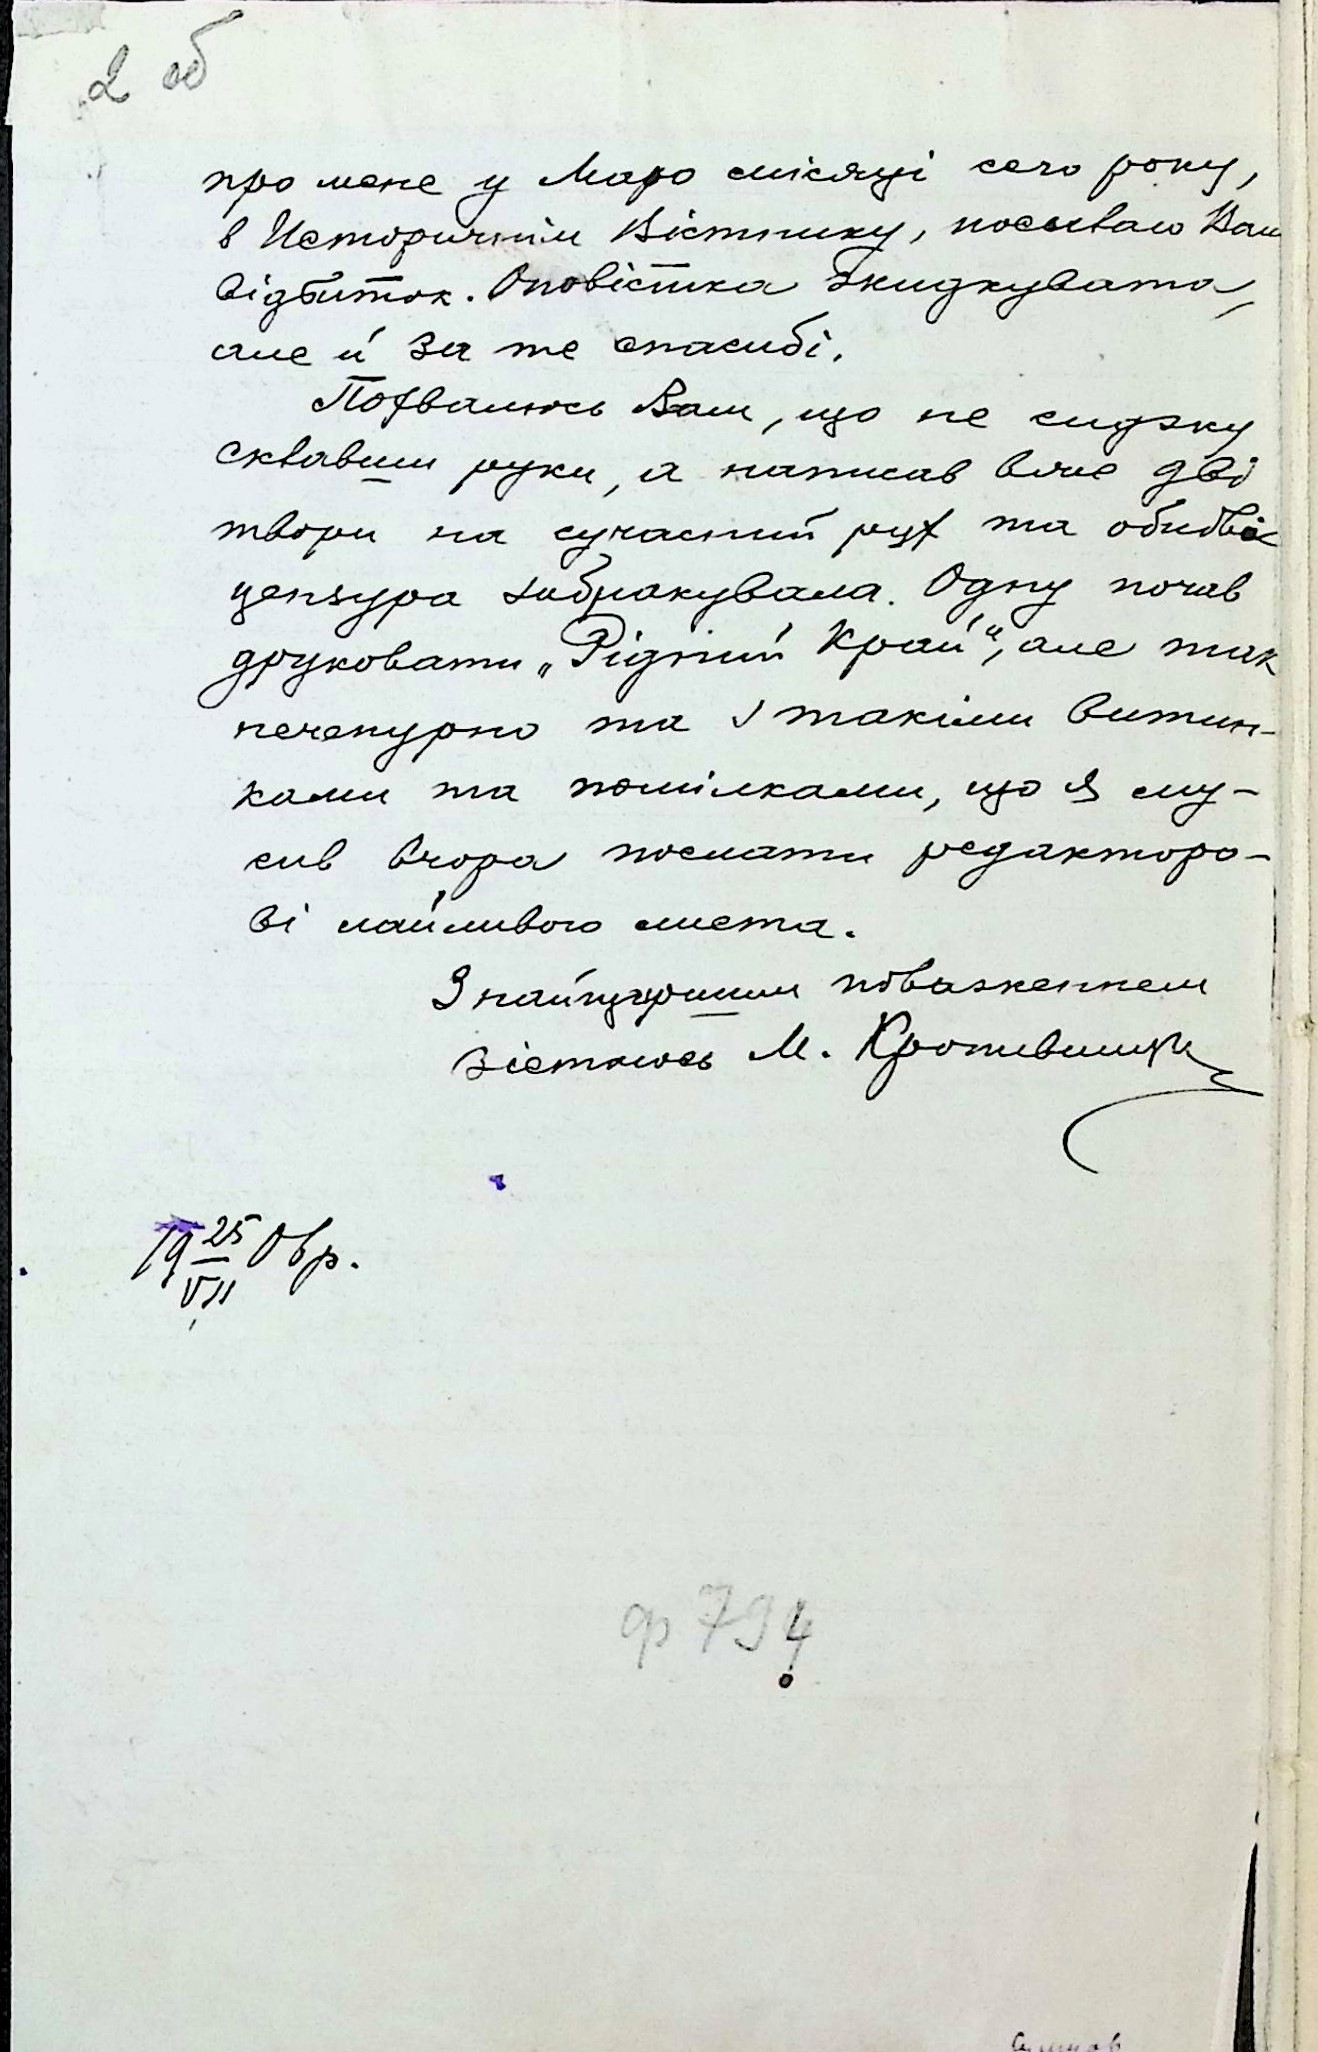 2 об
про мене у Маро місяці сего року,
в Историчнім Вістнику, посилаю Вам
відбиток. Оповістка шкидкувата,
але й за те спасибі.
Похвалюсь Вам, що не сиджу
склавши руки, а написав вже дві
твори на сучасний рух та обидвіє
цензура забракувала. Одну почав
друковати „Рідний Край", але так
нечепурно та з такіми витин-
ками та помілками, що я му-
сив вчора послати редакторо-
ві лайливого листа.
З найщирішим поваженнем
зістаюсь М. Кропивницкі
19 25/VII 06 р.
ф 794